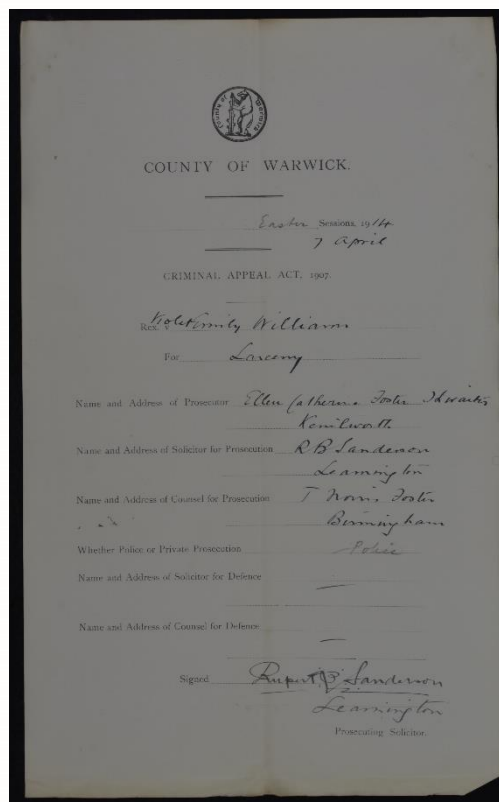 County of Warwick
COUNTY OF WARWICK.
Easter Sessions, 1914
7 April
CRIMINAL APPEAL ACT, 1907.
Rex. v. Violet Emily Williams
For Larceny
Name and Address of Prosecutor Ellen Catherine Foster
Kenilworth
Name and Address of Solicitor for Prosecution R B Sanderson
Leamington
Name and Address of Counsel for Prosecution T Norris Foster
Birmingham
Whether Police or Private Prosecution Police
Name and Address of Solicitor for Defence —
Name and Address of Counsel for Defence —
Signed Rupert B Sanderson
Leamington
Prosecuting Solicitor.